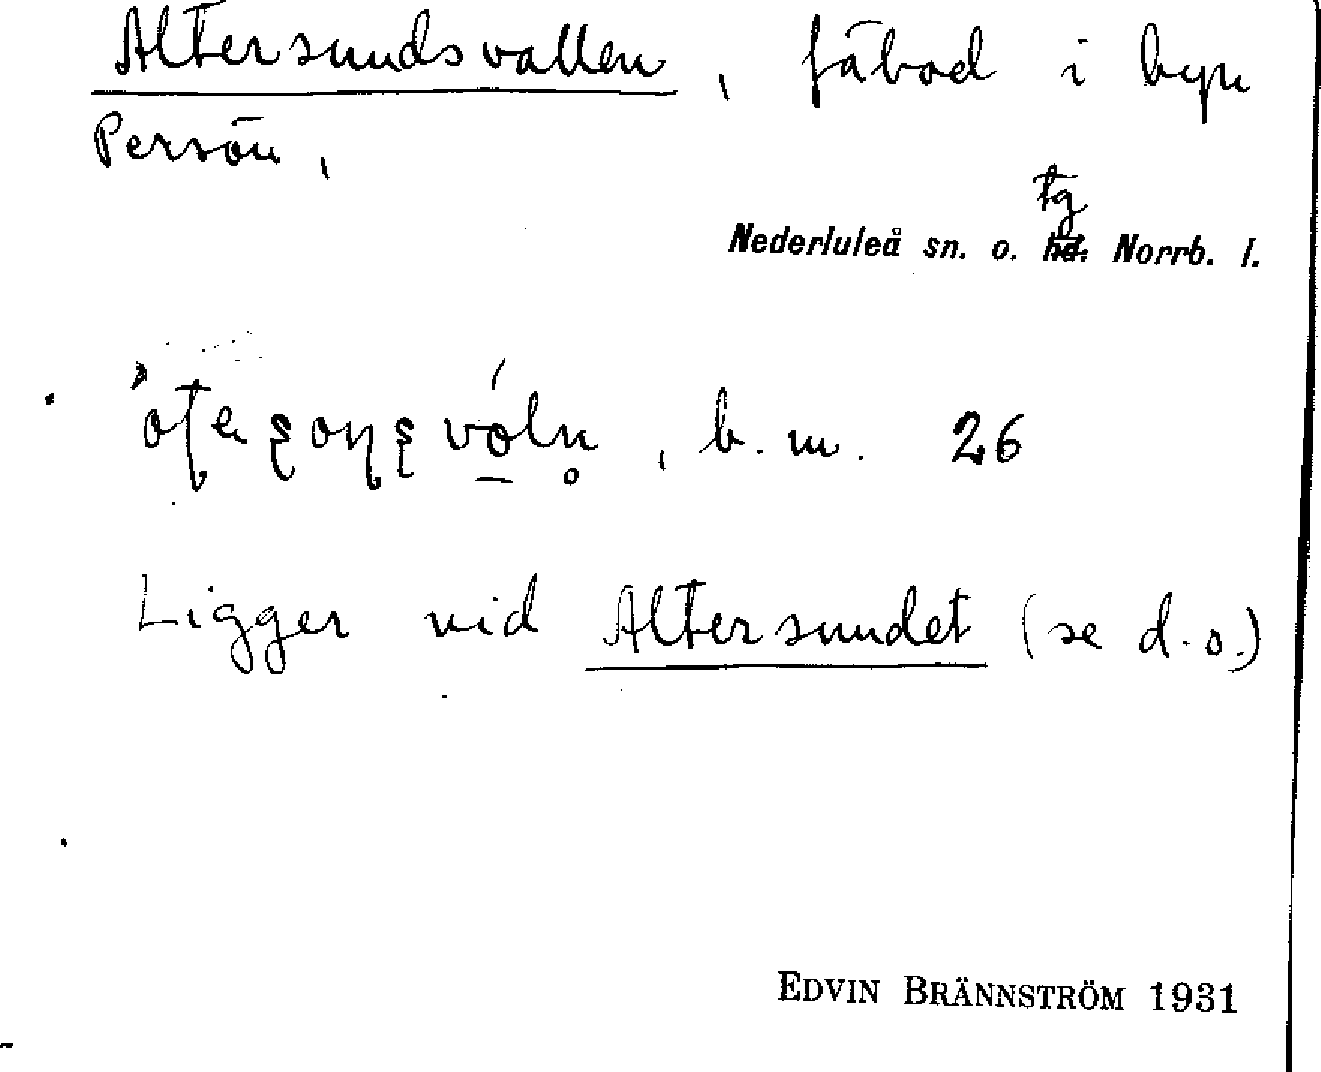 Altersundsvallen, fäbod i byn
Persön,
tg
Nederluleå sn. o. hd. Norrb. l.
, b. m. 26
Ligger vid Altersundet (se d. o.)
EDVIN BRÄNNSTRÖM 1931